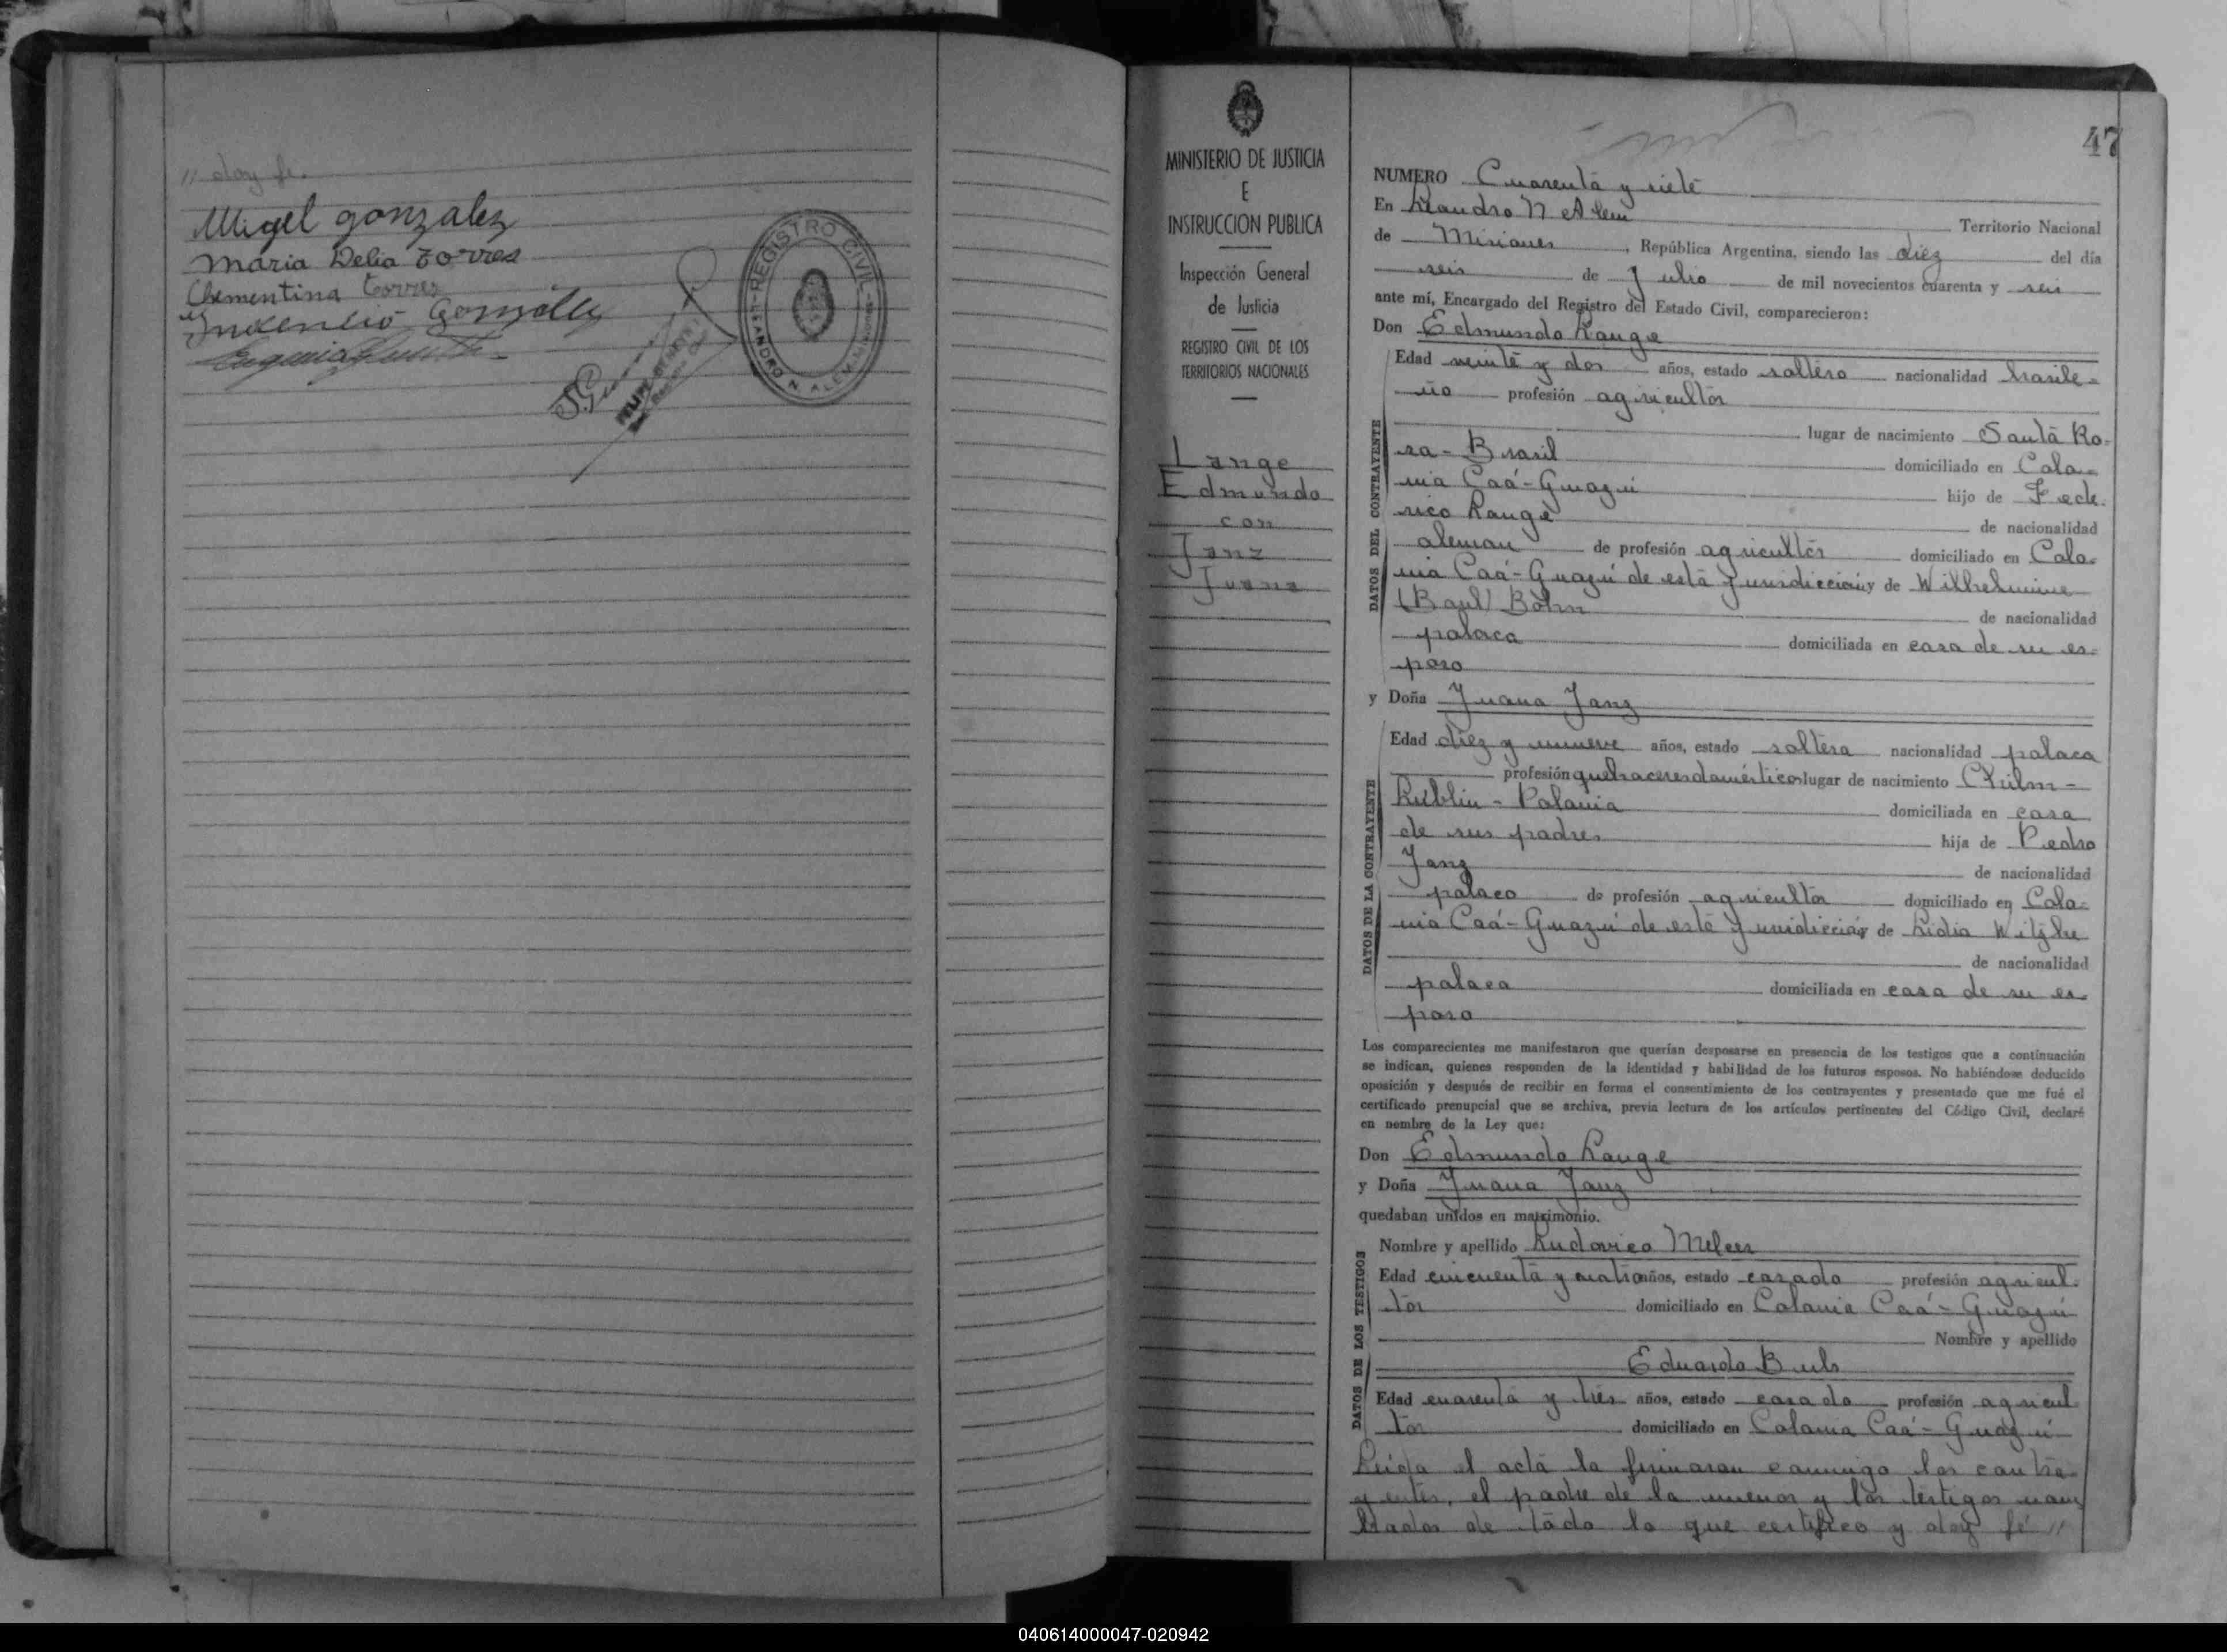 // doy fe.
Migel gonzalez
Maria Delia Torres
Clementina Torres
REGISTRO CIVIL
LEANDRO N. ALEM
47
MINISTERIO DE JUSTICIA
E
INSTRUCCION PUBLICA
Inspección General
de Justicia
REGISTRO CIVIL DE LOS
TERRITORIOS NACIONALES
Lange
Edmundo
con
Janz
Juana
NUMERO Cuarenta y siete
En Leandro N Alem Territorio Nacional
de Misiones, República Argentina, siendo las diez del día
seis de Julio de mil novecientos cuarenta y seis
ante mí, Encargado del Registro del Estado Civil, comparecieron:
Don Edmundo Lange
DATOS DEL CONTRAYENTE
Edad veinte y dos años, estado soltero nacionalidad brasile-
ño profesión agricultor
lugar de nacimiento Santa Ro-
sa - Brasil domiciliado en Colo-
nia Caá-Guazú hijo de Fede-
rico Lange de nacionalidad
aleman de profesión agricultor domiciliado en Colo-
nia Caá-Guazú de esta Jurisdicción y de Wilhelmine
Böhn de nacionalidad
polaca domiciliada en casa de su es-
poso
y Doña Juana Janz
DATOS DE LA CONTRAYENTE
Edad diez y nueve años, estado soltera nacionalidad polaca
profesión quehaceres domésticos lugar de nacimiento Chilm -
Lublin - Polonia domiciliada en casa
de sus padres hija de Pedro
Janz de nacionalidad
polaco de profesión agricultor domiciliado en Colo-
nia Caá-Guazú de esta Jurisdicción y de Lidia
de nacionalidad
polaca domiciliada en casa de su es-
poso
Los comparecientes me manifestaron que querían desposarse en presencia de los testigos que a continuación
se indican, quienes responden de la identidad y habilidad de los futuros esposos. No habiéndose deducido
oposición y después de recibir en forma el consentimiento de los contrayentes y presentado que me fué el
certificado prenupcial que se archiva, previa lectura de los artículos pertinentes del Código Civil, declaré
en nombre de la Ley que:
Don Edmundo Lange
y Doña Juana Janz
quedaban unidos en matrimonio.
DATOS DE LOS TESTIGOS
Nombre y apellido Ludovico Melcer
Edad cincuenta y cuatro años, estado casado profesión agricul-
tor domiciliado en Colonia Caá-Guazú
Nombre y apellido
Eduardo Buls
Edad cuarenta y tres años, estado casado profesión agricul
tor domiciliado en Colonia Caá-Guazú
Leída el acta la firmaron conmigo los contra-
yentes, el padre de la menor y los testigos nom
brados de todo lo que certifico y doy fé //
040614000047-020942